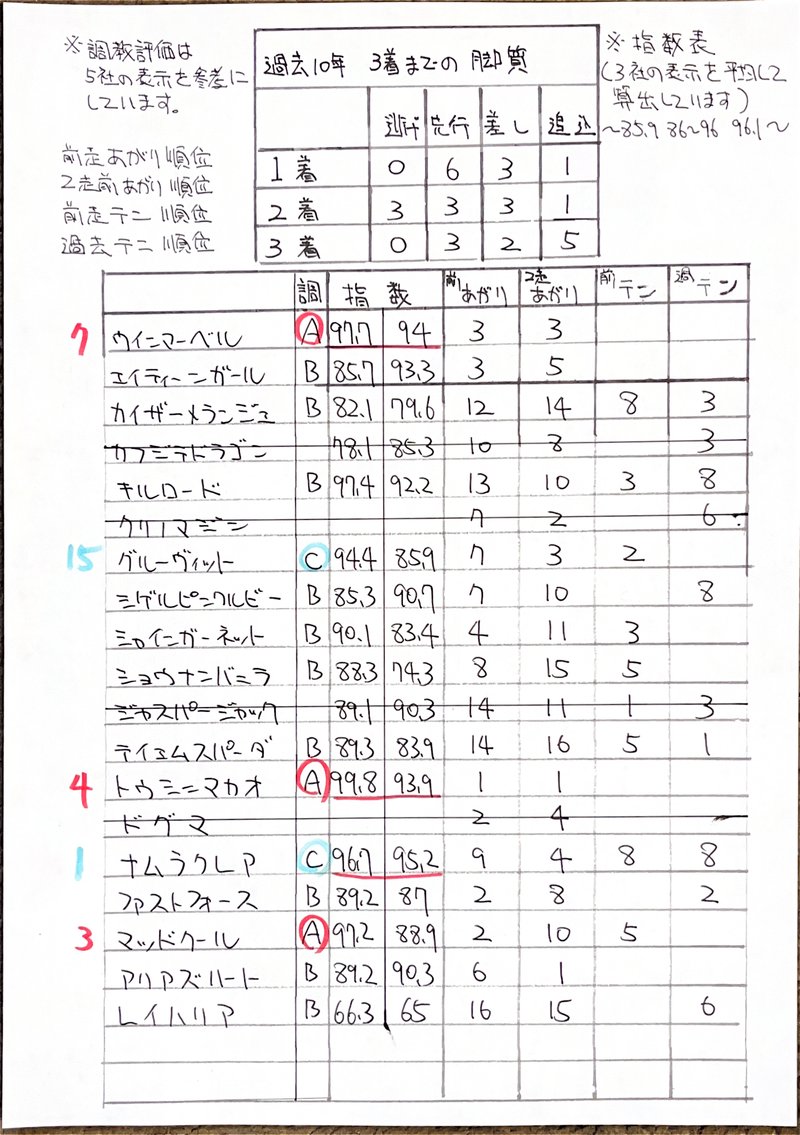 ※調教評価は
5社の表示を参考に
しています。
前走あがり順位
2走前あがり順位
前走テン順位
過去テン順位
過去10年 3着までの脚質
逃げ 先行 差し 追込
1着 0 6 3 1
2着 3 3 3 1
3着 0 3 2 5
※指数表
(3社の表示を平均して
算出しています)
〜85.9 86〜96 96.1〜
調 指数 前あがり 2走あがり 前テン 過テン
7 ウインマーベル A 97.7 94 3 3
エイティーンガール B 85.7 93.3 3 5
カイザーメランジェ B 82.1 79.6 12 14 8 3
カフジテトラゴン 78.1 85.3 10 8 3
キルロード B 97.4 92.2 13 10 3 8
クリノマジン 7 2 6
15 グルーヴィット C 94.4 85.9 7 3 2
シゲルピンクルビー B 85.3 90.7 7 10 8
シャインガーネット B 90.1 83.4 4 11 3
ショウナンバニラ B 88.3 74.3 8 15 5
ジャスパージャック 89.1 90.3 14 11 1 3
テイエムスパーダ B 89.3 83.9 14 16 5 1
4 トウシンマカオ A 99.8 93.9 1 1
ドグマ 2 4
1 ナムラクレア C 96.7 95.2 9 4 8 8
ファストフォース B 89.2 87 2 8 2
3 マッドクール A 97.2 88.9 2 10 5
アリアズハート B 89.2 90.3 6 1
レイハリア B 66.3 65 16 15 6